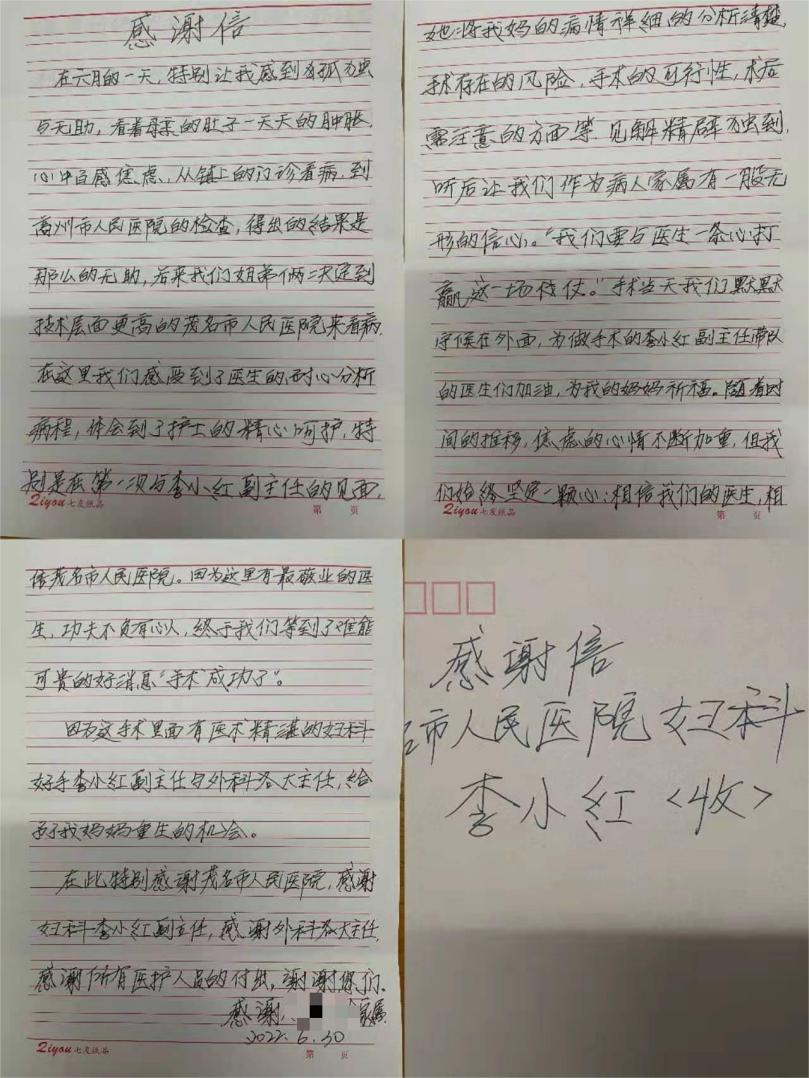 感谢信
在六月的一天，特别让我感到有孤独
与无助，看着母亲的肚子一天天的肿胀，
心中百感焦虑，从镇上的门诊看病，到
高州市人民医院的检查，得出的结果是
那么的无助，后来我们姐弟俩决定到
技术层面更高的茂名市人民医院来看病，
在这里我们感受到了医生的耐心分析
病程，体会到了护士的精心呵护，特
别是在第一次与李小红副主任的见面，
Qiyou 七友纸品
第 页
她将我妈的病情详细的分析清楚，
手术存在的风险，手术的可行性，术后
需注意的方面等，见解精辟独到，
听后让我们作为病人家属有一股无
形的信心。“我们要与医生一条心打
赢这一场战仗。”手术当天我们默默
守候在外面，为做手术的李小红副主任带队
的医生们加油，为我的妈妈祈福。随着时
间的推移，焦虑的心情不断加重，但我
们始终坚定一颗心：相信我们的医生，相
Qiyou 七友纸品
第 页
信茂名市人民医院。因为这里有最敬业的医
生，功夫不负有心人，终于我们等到了难能
可贵的好消息“手术成功了”。
因为这手术里面有医术精湛的妇科
好手李小红副主任与外科各大主任，给
予了我妈妈重生的机会。
在此特别感谢茂名市人民医院，感谢
妇科李小红副主任，感谢外科各大主任，
感谢所有医护人员的付出，谢谢您们。
感谢人 家属
2022.6.30
Qiyou 七友纸品
第 页
感谢信
名市人民医院妇科
李小红<收>